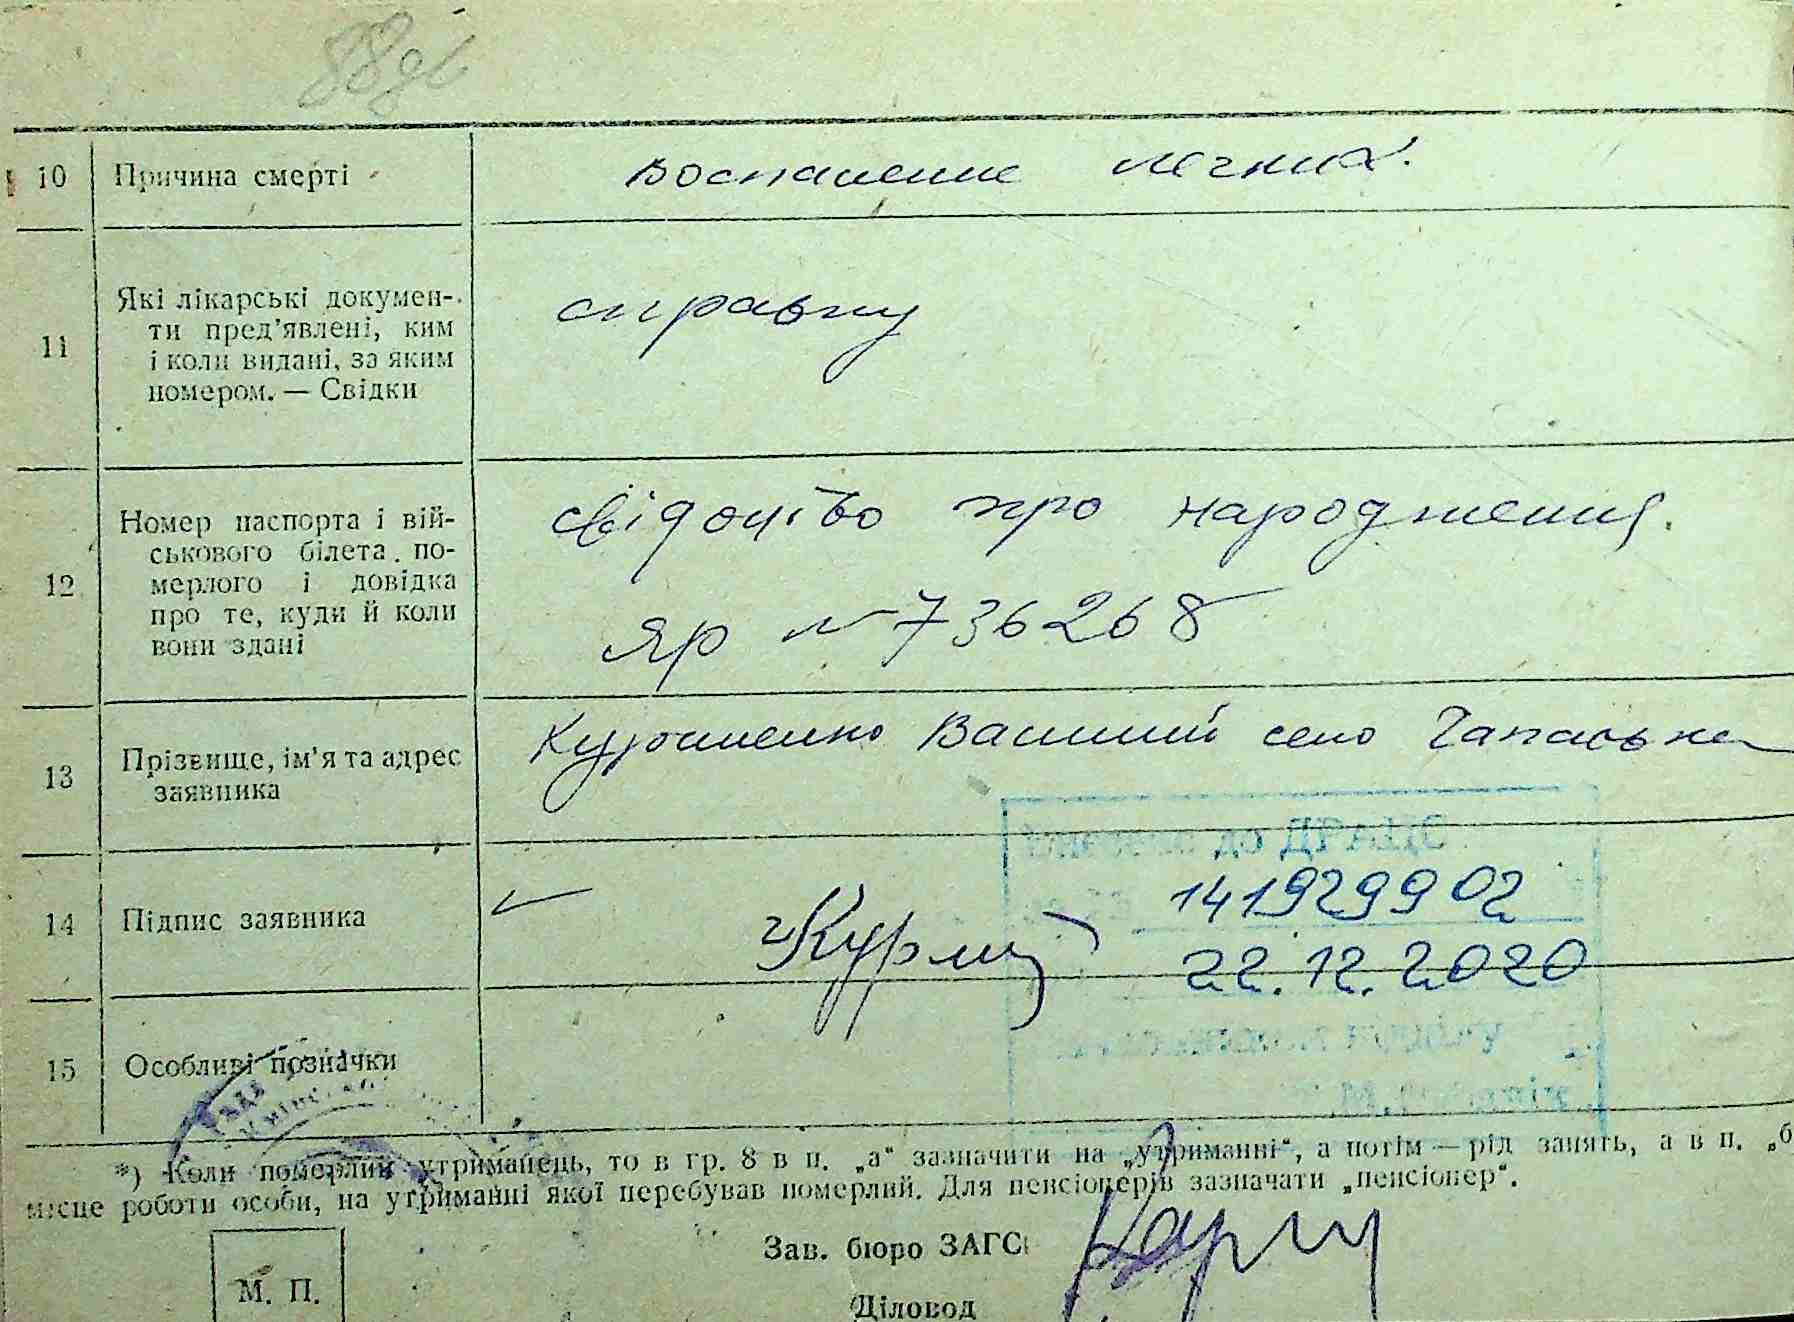 10 Причина смерті Воспаление легких.
11 Які лікарські докумен-
ти пред'явлені, ким
і коли видані, за яким
номером. — Свідки
справку
12 Номер паспорта і вій-
ськового білета по-
мерлого і довідка
про те, куди й коли
вони здані
свідоцтво про народження.
ЯР № 736268
13 Прізвище, ім'я та адрес
заявника
Василий село
до ДРАЦС
14 Підпис заявника
1419299 02
22.12.2020
15 Особливі позначки
*) Коли померлий утриманець, то в гр. 8 в п. „а“ зазначити на „утриманні“, а потім — рід занять, а в п. „б
місце роботи особи, на утриманні якої перебував померлий. Для пенсіонерів зазначати „пенсіонер“.
Зав. бюро ЗАГС
М. П.
Діловод